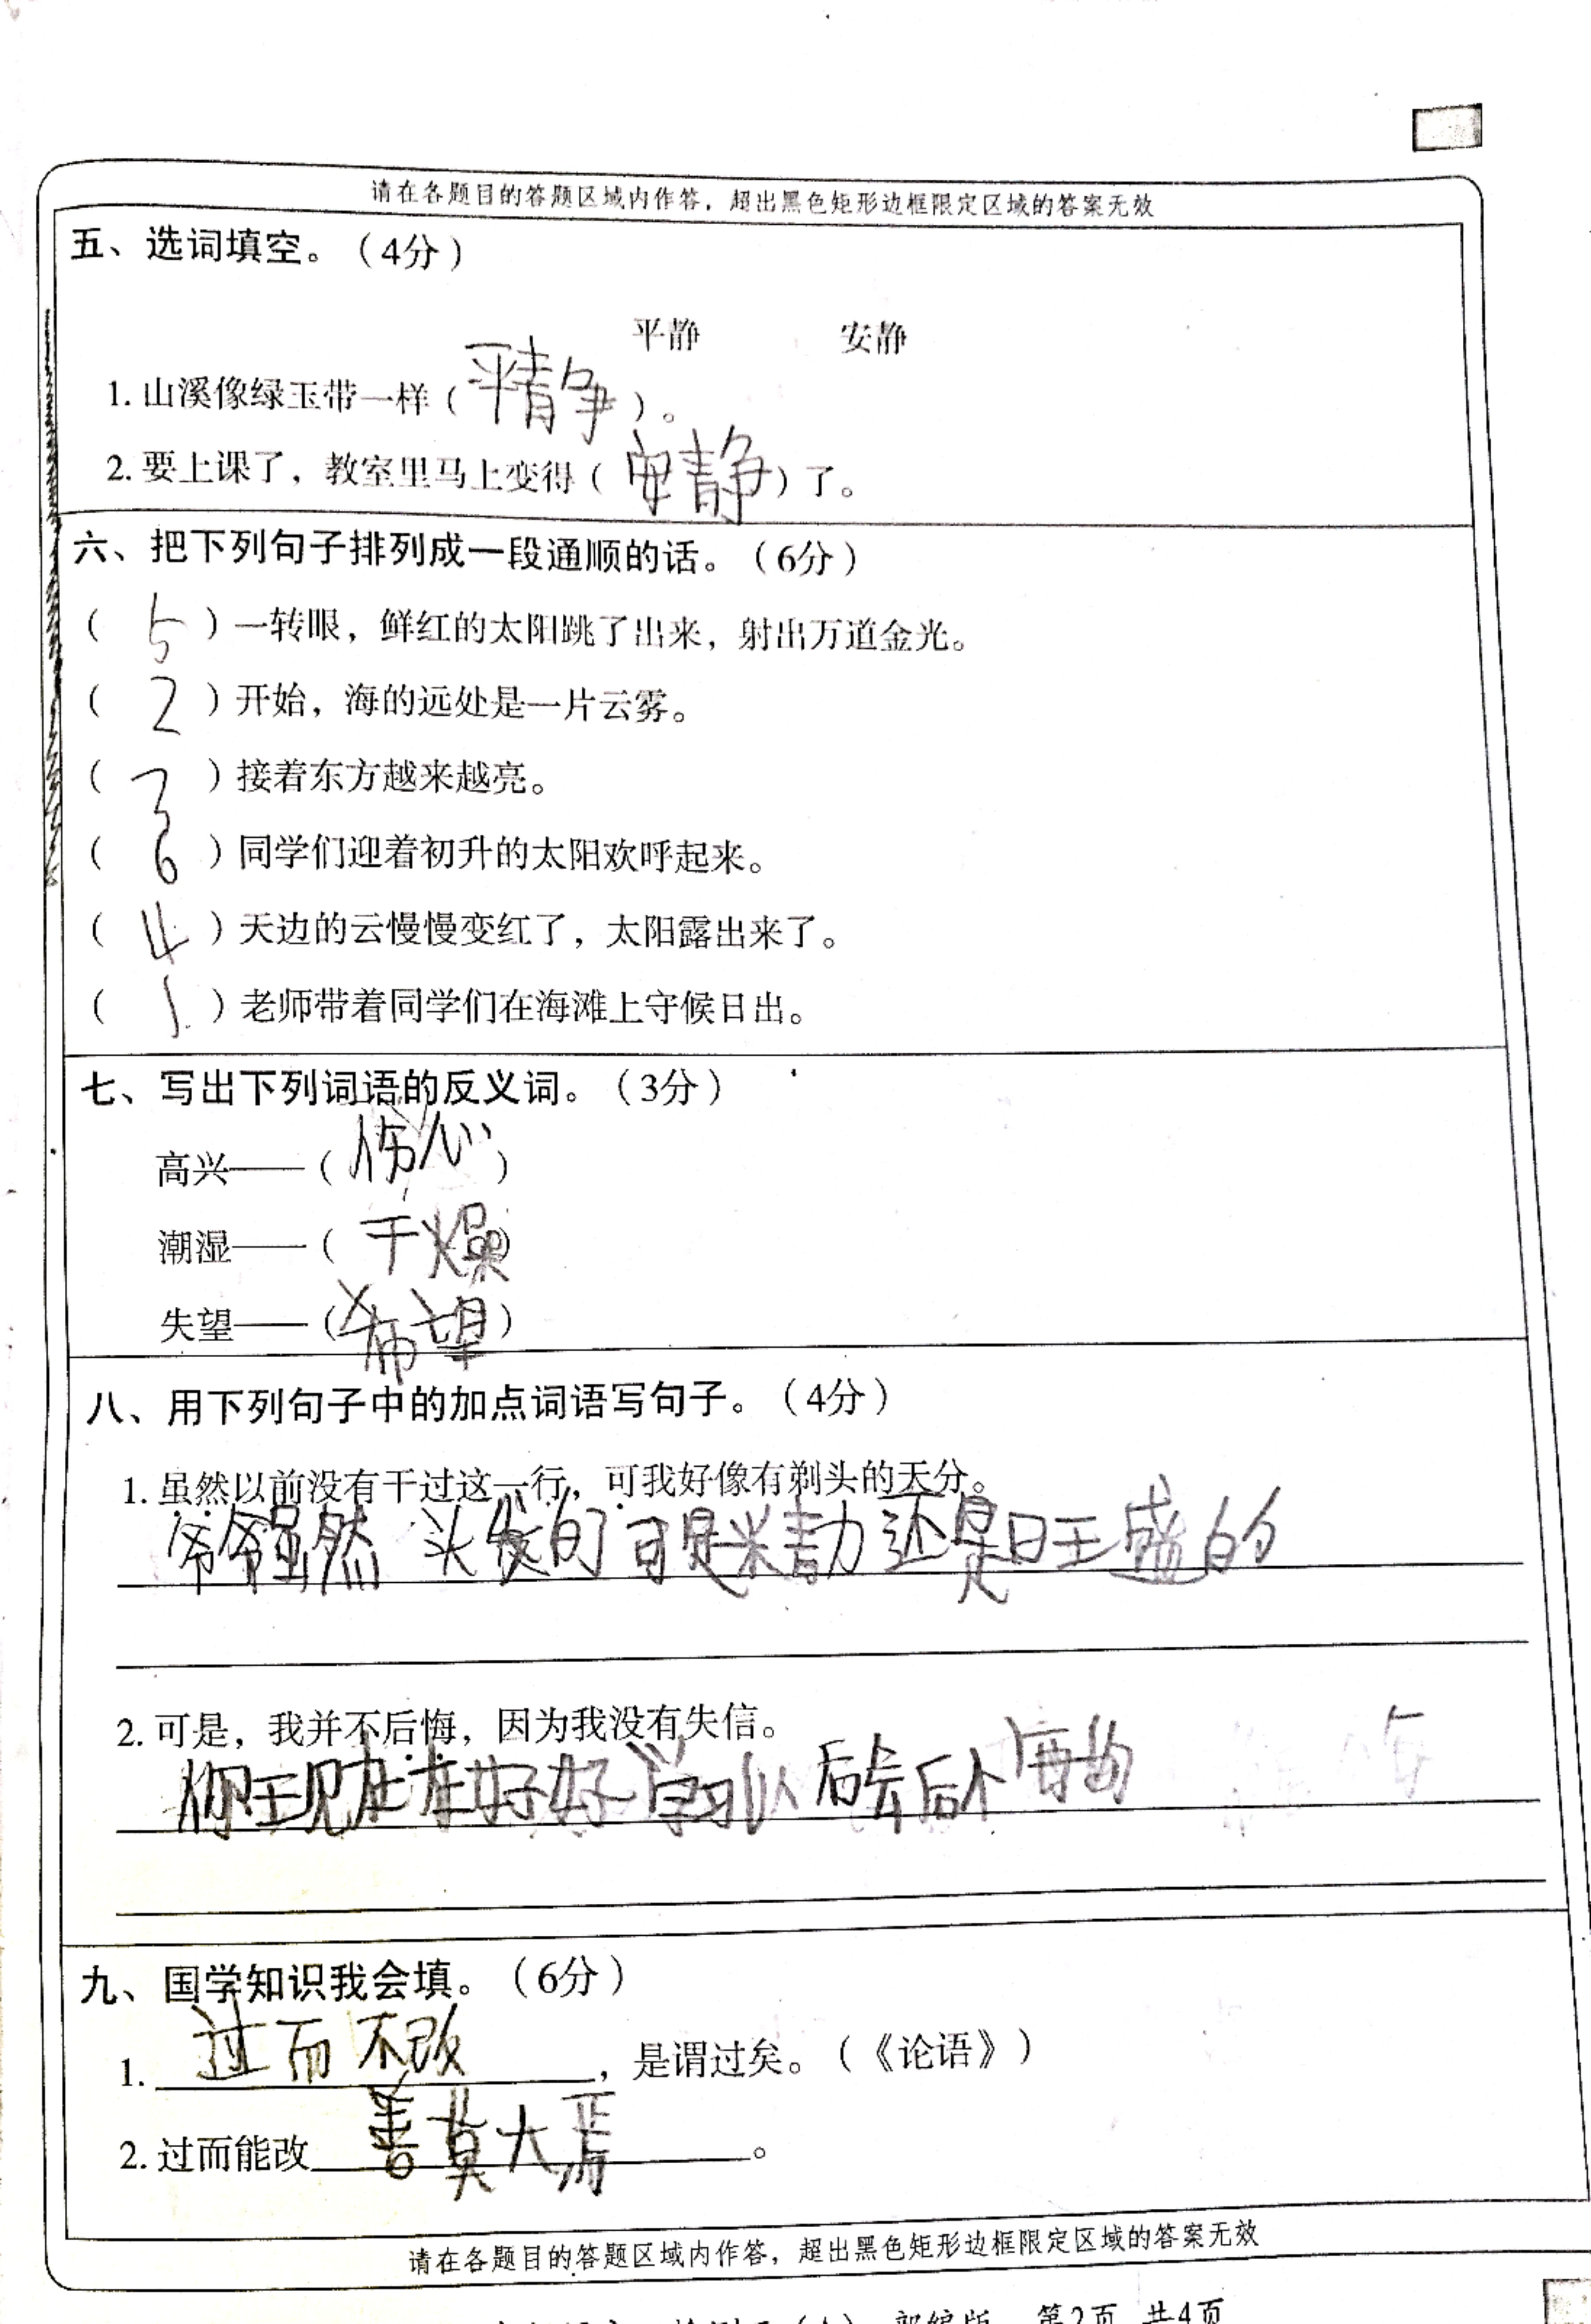 请在各题目的答题区域内作答，超出黑色矩形边框限定区域的答案无效
五、选词填空。（4分）
平静 安静
1. 山溪像绿玉带一样（平静）。
2. 要上课了，教室里马上变得（安静）了。
六、把下列句子排列成一段通顺的话。（6分）
（5）一转眼，鲜红的太阳跳了出来，射出万道金光。
（2）开始，海的远处是一片云雾。
（3）接着东方越来越亮。
（6）同学们迎着初升的太阳欢呼起来。
（4）天边的云慢慢变红了，太阳露出来了。
（1）老师带着同学们在海滩上守候日出。
七、写出下列词语的反义词。（3分）
高兴——（伤心）
潮湿——（干燥）
失望——（希望）
八、用下列句子中的加点词语写句子。（4分）
1. 虽然以前没有干过这一行，可我好像有剃头的天分。
爷爷虽然头发的可是精力还是旺盛的
2. 可是，我并不后悔，因为我没有失信。
你现在在好好学习以后会后悔的
九、国学知识我会填。（6分）
1. 过而不改，是谓过矣。（《论语》）
2. 过而能改善莫大焉。
请在各题目的答题区域内作答，超出黑色矩形边框限定区域的答案无效
部编版 第2页 共4页